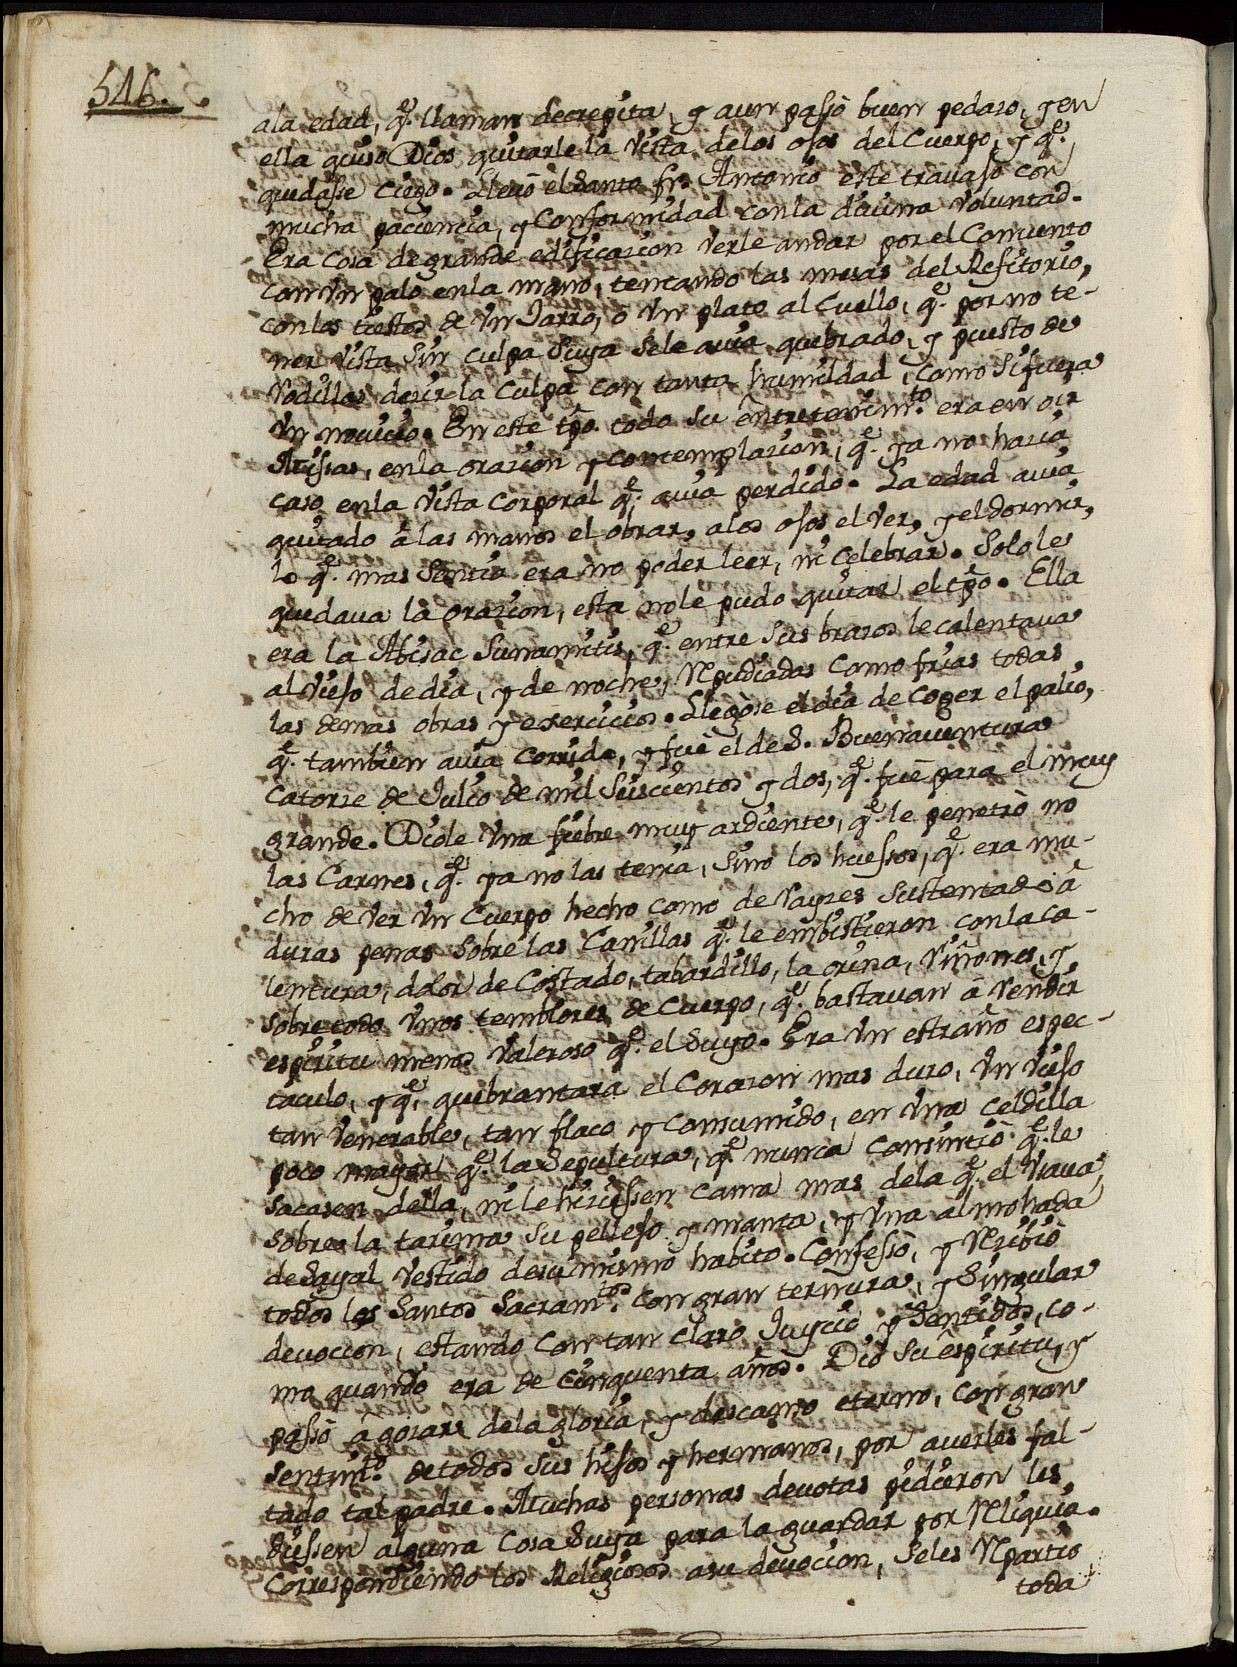 546.
ala edad, q̃. llaman decrepita, y aun passò buen pedazo, y en
ella quiso Dios quitarle la vista delos ojos del Cuerpo, y q̃.
quedasse ciego. Lleuò el Santo fr. Antonio este trauajo con
mucha paciencia, y Conformidad conla diuina voluntad.
Era cosa de grande edificazion verle andar por el Conuento
con vn palo enla mano, tentando las mesas del Refitorio,
conlos tiestos de vn Jarro, ò vn plato al Cuello, q̃. por no te-
ner vista sin culpa suya sele auia quebrado, y puesto de
Rodillas dezir la Culpa con tanta humildad, como si fuera
vn nouicio. En este tp̃o. todo su entretenim.to era en oir
Missas, enla orazion y contemplazion, q̃. ya no hazia
caso enla vista corporal q̃. auia perdido. La edad auia
quitado à las manos el obrar, alos ojos el ver, y el dormir,
lo q̃. mas sentia era no poder leer, ni celebrar. Solo le
quedaua la orazion, esta nole pudo quitar el tp̃o. Ella
era la Abisac Sunamitis, q̃. entre sus brazos le calentaua
al viejo de dia, y de noche, Repudiadas como frias todas
las demas obras y exercicios. Llegòse el dia de coger el palio,
q̃. tambien auia corrido, y fuè el de S. Buenauentura
catorze de Julio de mil seiscientos y dos, q̃. fuè para el muy
grande. Diole vna fiebre muy ardiente, q̃. le penetrò no
las Carnes, q̃. ya no las tenia, sino los huessos, q̃. era mu-
cho de ver vn Cuerpo hecho como de Rayzes sustentado à
duras penas sobre las Canillas q̃. le embistieron conla ca-
lentura, dolor de Costado, tabardillo, la orina, Riñones, y
sobre todo vnos temblores de Cuerpo, q̃. bastauan à Rendir
espiritu menos valeroso q̃. el suyo. Era vn estraño espec-
taculo, y q̃. quebrantara el Corazon mas duro, vn viejo
tan venerable, tan flaco y Consumido, en vna celdilla
poco mayor q̃. la Sepultura, q̃. nunca Consintiò q̃. le
sacasen della, ni le hiziessen cama mas dela q̃. el vsaua,
sobre la tarima su pellejo y manta, y vna almohada
de Sayal vestido desu mismo habito. Confessò, y Recibiò
todos los Santos Sacram.tos con gran ternura, y Singular
deuocion, estando con tan claro Juycio y Sentidos, co-
mo quando era de Cinquenta años. Diò su espiritu, y
passò à gozar dela gloria, y descanso eterno, con gran
sentim.to de todos sus hijos y hermanos, por auerles fal-
tado tal padre. Muchas personas deuotas pidieron les
diessen alguna cosa suya para la guardar por Reliquia.
Correspondiendo los Religiosos asu deuocion, seles Repartiò
toda